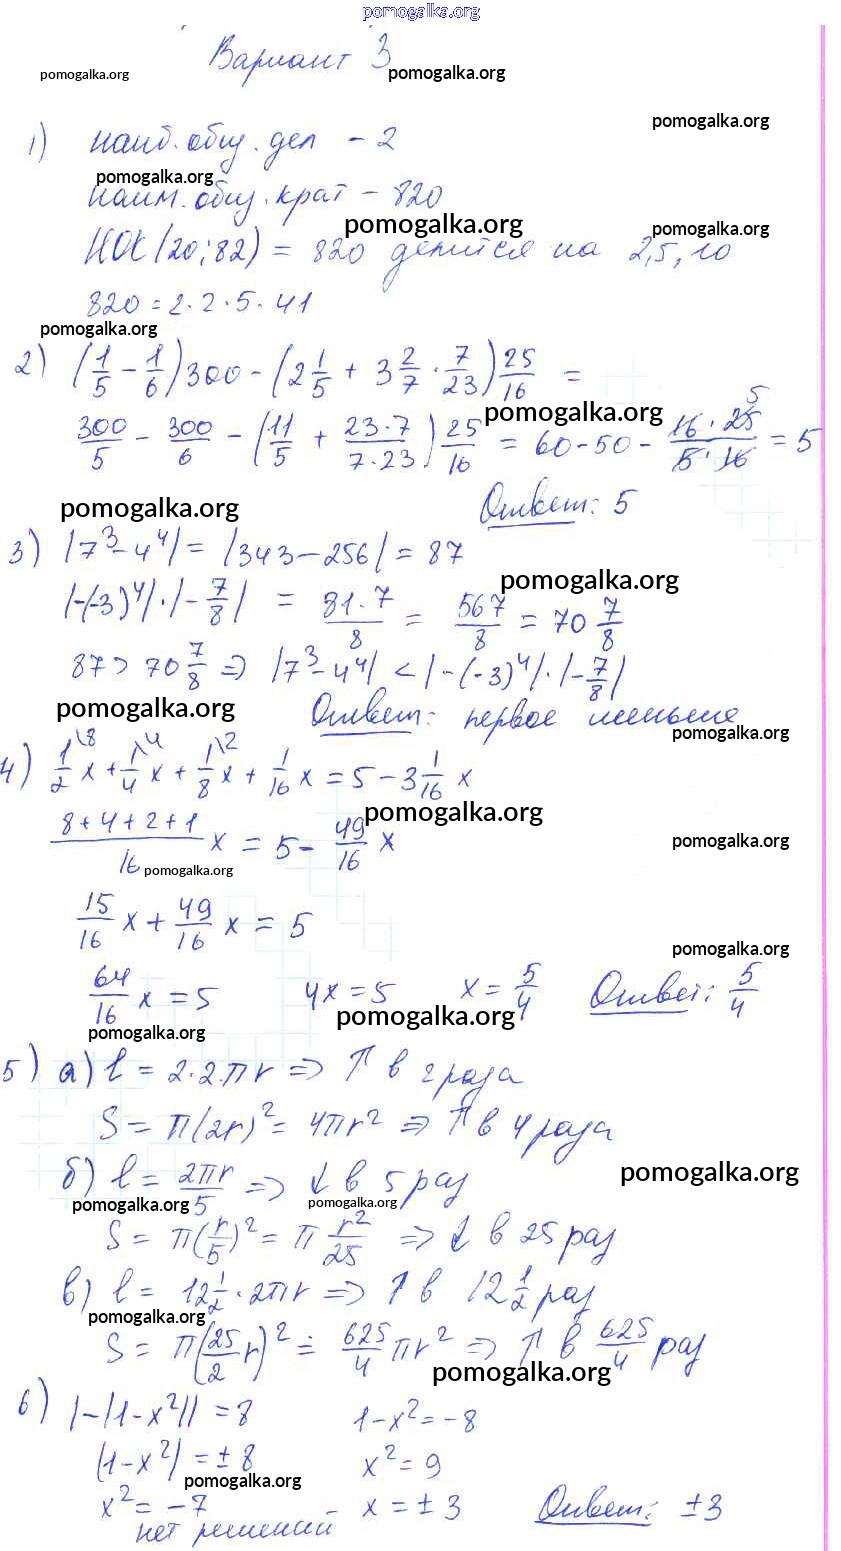 pomogalka.org
Вариант 3
pomogalka.org pomogalka.org
pomogalka.org
1) наиб. общ. дел - 2
pomogalka.org
наим. общ. крат - 820
pomogalka.org pomogalka.org
НОК (20; 82) = 820 делится на 2, 5, 10
820 = 2 · 2 · 5 · 41
pomogalka.org
2) (1/5 - 1/6) 300 - (2 1/5 + 3 2/7 · 7/23) 25/16 =
pomogalka.org
300/5 - 300/6 - (11/5 + 23·7/7·23) 25/16 = 60 - 50 - 16·25/5·16 = 5
5
pomogalka.org
Ответ: 5
3) |7³ - 4⁴| = |343 - 256| = 87
pomogalka.org
|-(-3)⁴| · |-7/8| = 81·7/8 = 567/8 = 70 7/8
87 > 70 7/8 => |7³ - 4⁴| < |-(-3)⁴| · |-7/8|
pomogalka.org
Ответ: первое меньше
pomogalka.org
4) 1\8/2 x + 1\4/4 x + 1\2/8 x + 1/16 x = 5 - 3 1/16 x
pomogalka.org
8+4+2+1/16 x = 5 - 49/16 x
pomogalka.org
pomogalka.org
15/16 x + 49/16 x = 5
pomogalka.org
64/16 x = 5 4x = 5 x = 5/4 Ответ: 5/4
pomogalka.org
pomogalka.org
5) а) l = 2·2·πr => ↑ в 2 раза
S = π(2r)² = 4πr² => ↑ в 4 раза
pomogalka.org
б) l = 2πr/5 => ↓ в 5 раз
pomogalka.org pomogalka.org
S = π(r/5)² = π r²/25 => ↓ в 25 раз
в) l = 12 1/2 · 2πr => ↑ в 12 1/2 раз
pomogalka.org
S = π(25/2 r)² = 625/4 πr² => ↑ в 625/4 раз
pomogalka.org
6) |-|1-x²|| = 8 1-x² = -8
(1-x²) = ±8 x² = 9
pomogalka.org
x² = -7 x = ±3 Ответ: ±3
нет решений